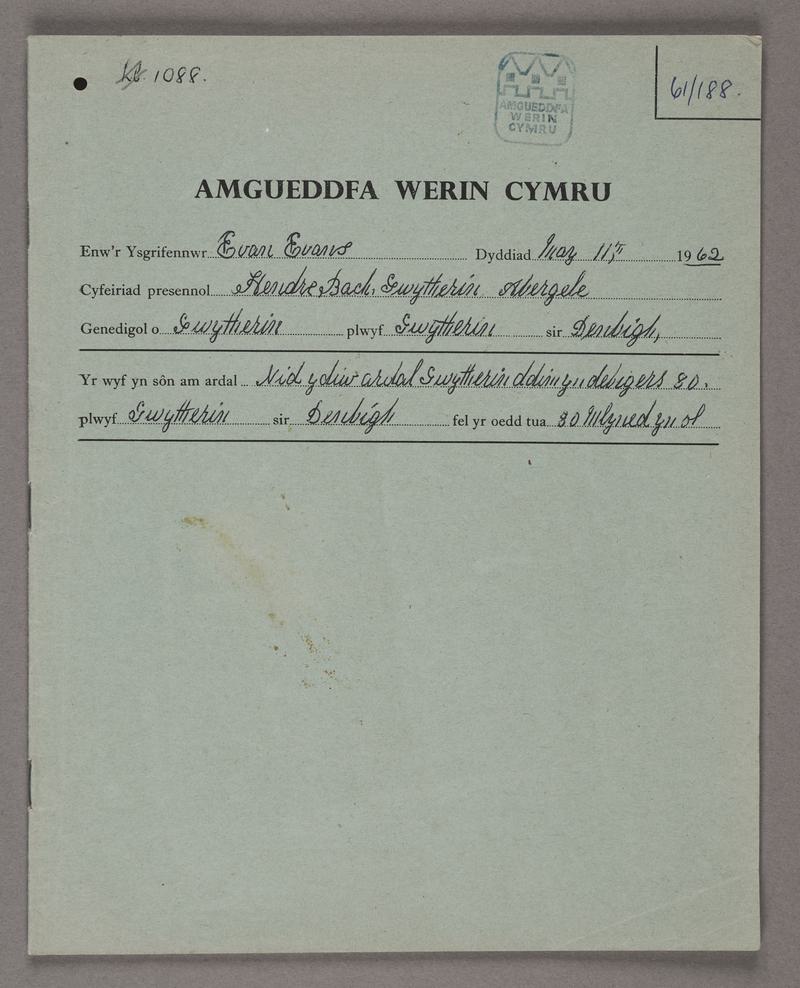 1088.
61/188.
AMGUEDDFA
WERIN
CYMRU
AMGUEDDFA WERIN CYMRU
Enw'r Ysgrifennwr Evan Evans Dyddiad May 11 1962
Cyfeiriad presennol Hendre Bach, Gwytherin Abergele
Genedigol o Gwytherin plwyf Gwytherin sir Denbigh,
Yr wyf yn sôn am ardal Nid ydiw ardal Gwytherin ddim yn debig ers 80.
plwyf Gwytherin sir Denbigh fel yr oedd tua 80 Mlyned yn ol